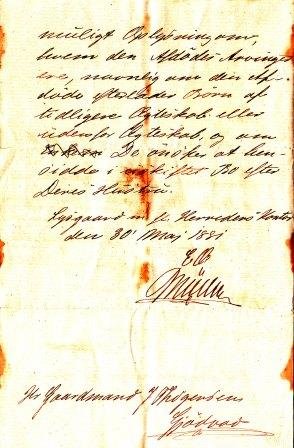 muligt Oplysning om,
hvem den Afdødes Arvinger
ere, navnlig om din Af-
døde efterlader Børn af
tidligere Ægteskab eller
udenfor Ægteskab, og om
De ønsker at hen-
sidde i uskiftet Bo efter
Deres Hustru.
Herreders Kontor
den 30' Maj 1881
EB
Müller
Hr Gaardmand J Thøgersens
Gjødvad